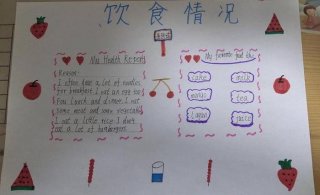 饮食情况
My Health Report
Reason:
I often have a lot of noodles
for breakfast. I eat an egg too.
For lunch and dinner, I eat
some meat and some vegetables.
I eat a little rice. I don't
eat a lot of hamburgers.
My favourite food
cake
milk
mango
tea
juice